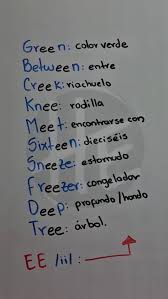 Green: color verde
Between: entre
Creek: riachuelo
Knee: rodilla
Meet: encontrarse con
Sixteen: dieciséis
Sneeze: estornudo
Freezer: congelador
Deep: profundo/hondo
Tree: árbol.
EE /ii/: